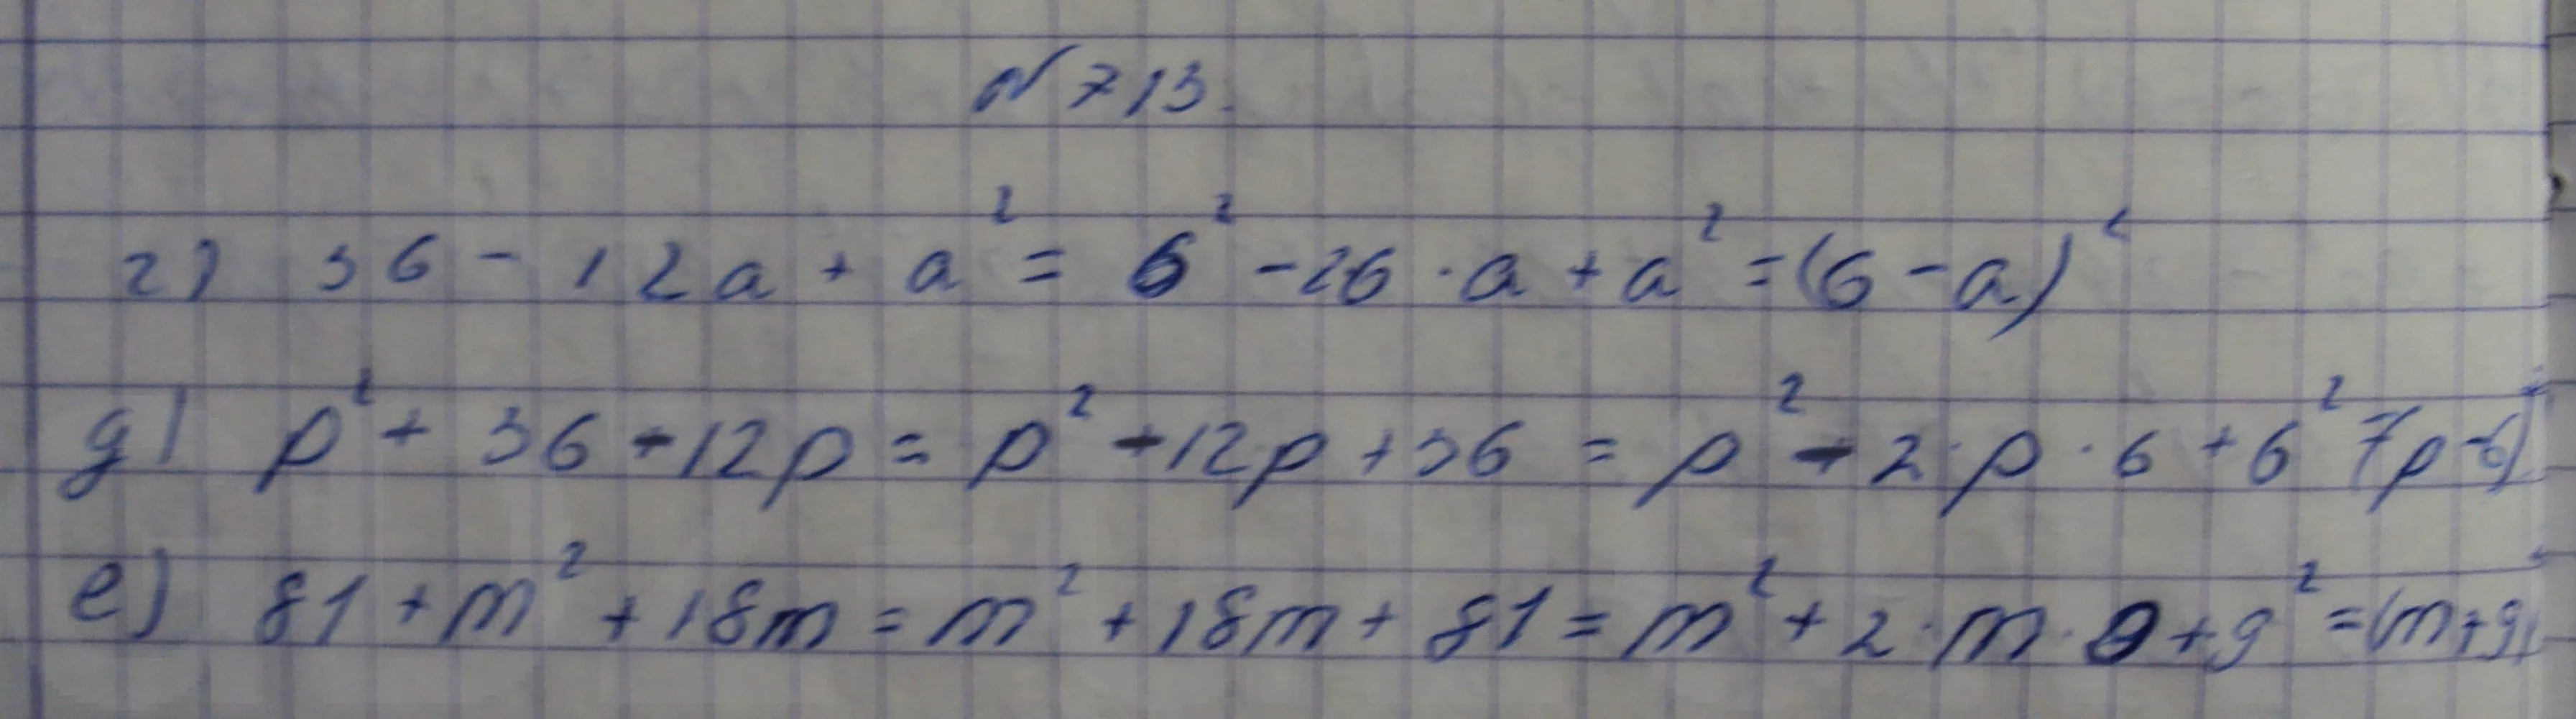 №713.
г) 36 - 12a + a² = 6² - 26 · a + a² = (6 - a)²
д) p² + 36 - 12p = p² - 12p + 36 = p² - 2 · p · 6 + 6² = (p - 6)²
е) 81 + m² + 18m = m² + 18m + 81 = m² + 2 · m · 9 + 9² = (m + 9)²